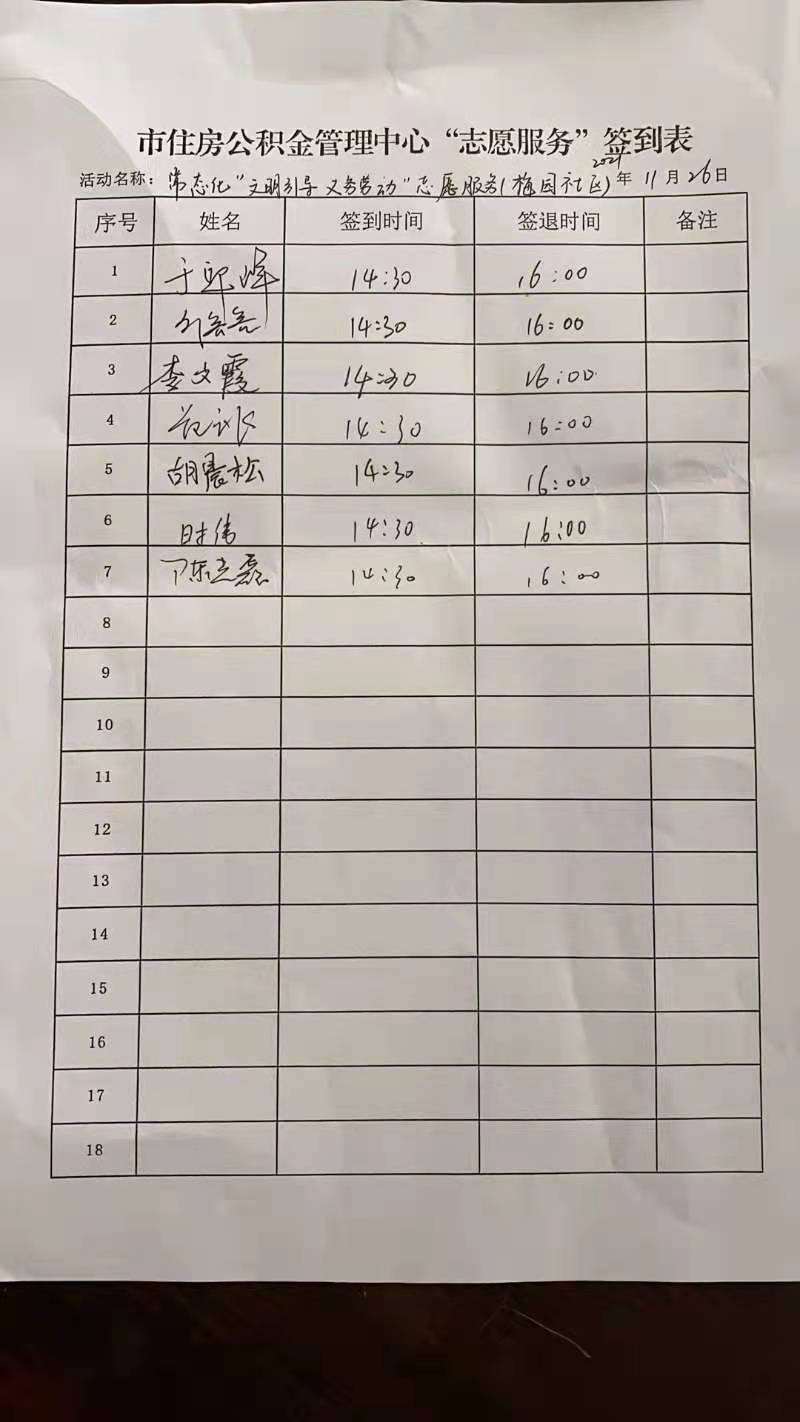 市住房公积金管理中心“志愿服务”签到表
活动名称：常态化“文明引导 义务劳动”志愿服务(梅园社区) 2021年 11月26日
序号 姓名 签到时间 签退时间 备注
1 于 峰 14:30 16:00
2 14:30 16:00
3 李文霞 14:30 16:00
4 14:30 16:00
5 胡震松 14:30 16:00
6 时伟 14:30 16:00
7 陈志磊 14:30 16:00
8
9
10
11
12
13
14
15
16
17
18